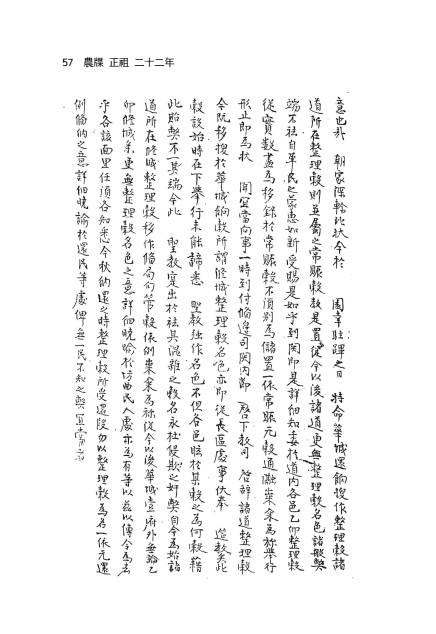 57 農牒 正祖 二十二年
意也哉 朝家深軫比狀今於 園幸駐蹕之日 特命華城還餉復作整理穀諸
道所在整理穀則並屬之常賑穀數是置從今以後諸道更無整理穀名色諸般弊
端不祛自革民之蒙惠如新受賜是如乎到關即是詳細知委於道內各邑乙卯整理穀
從實數盡爲移錄於常賑穀不須別爲儲置一依常賑元穀通融糶糴爲㫆舉行
形止即爲狀 聞宜當向事一時到付備邊司關內節 啓下敎司 啓辭諸道整理穀
今既移授於華城餉穀所謂修城整理穀名色亦即從長區處事伏奉 筵敎矣此
穀設始時在下舉行未能諦悉 聖敎徒作名色不但各邑眩於某穀之爲何穀藉
此貽弊不一其端今此 聖敎寔出於祛其混雜之穀名永杜侵欺之奸弊自今爲始諸
道所在修城整理穀移作備局句管穀依例糶糴爲㫆從今以後華城壹府外無論乙
卯修城矣更無整理穀名色之意詳細曉喻於坊曲民人處亦爲有等以茲以傳令爲去
乎各該面里任須各知悉今秋納還之時整理穀所受還段勿以整理穀爲名一依元還
例備納之意詳細曉諭於還民等處俾無一民不知之弊宜當者